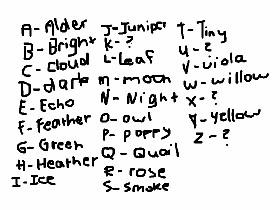 A-Alder
B-Bright
C-Cloud
D-dark
E-Echo
F-Feather
G-Green
H-Heather
I-Ice
J-Juniper
K-?
L-Leaf
M-moon
N-Night
O-owl
P-poppy
Q-Quail
R-rose
S-Smoke
T-Tiny
U-?
V-viola
W-willow
X-?
Y-Yellow
Z-?